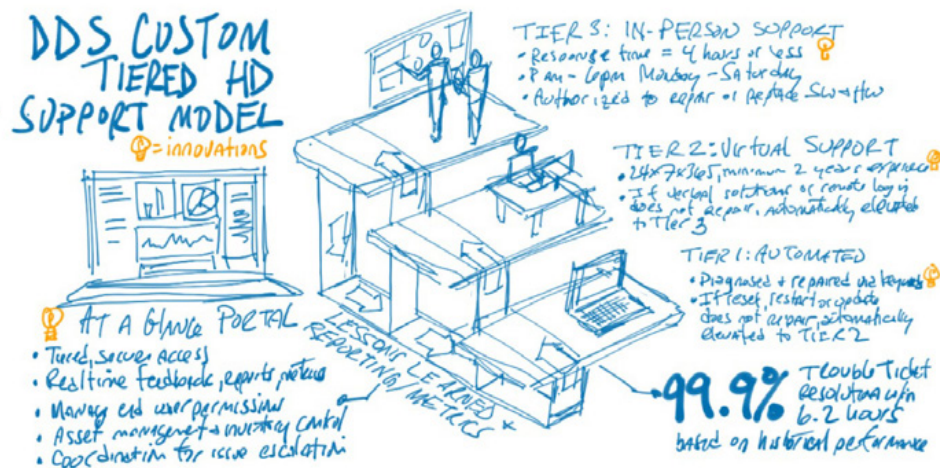 DDS CUSTOM
TIERED HD
SUPPORT MODEL
= innovations
AT A GLANCE PORTAL
• Tiered, secure access
• Realtime feedback, reports, metrics
• Manage end user permissions
• Asset management + inventory control
• Coordination for issue escalation
TIER 3: IN-PERSON SUPPORT
• Response time = 4 hours or less
Monday - Saturday
• Authorized to repair or replace SW + HW
TIER 2: Virtual SUPPORT
• 24x7x365, minimum 2 years experience
• If verbal solutions or remote log in
does not repair, automatically elevated
to Tier 3
TIER 1: AUTOMATED
• Diagnosed + repaired via
• If reset, restart or update
does not repair, automatically
elevated to TIER 2
LESSONS LEARNED
REPORTING/
METRICS
99.9%
TROUBLE TICKET
RESOLUTION w/in
6.2 hours
based on historical performance